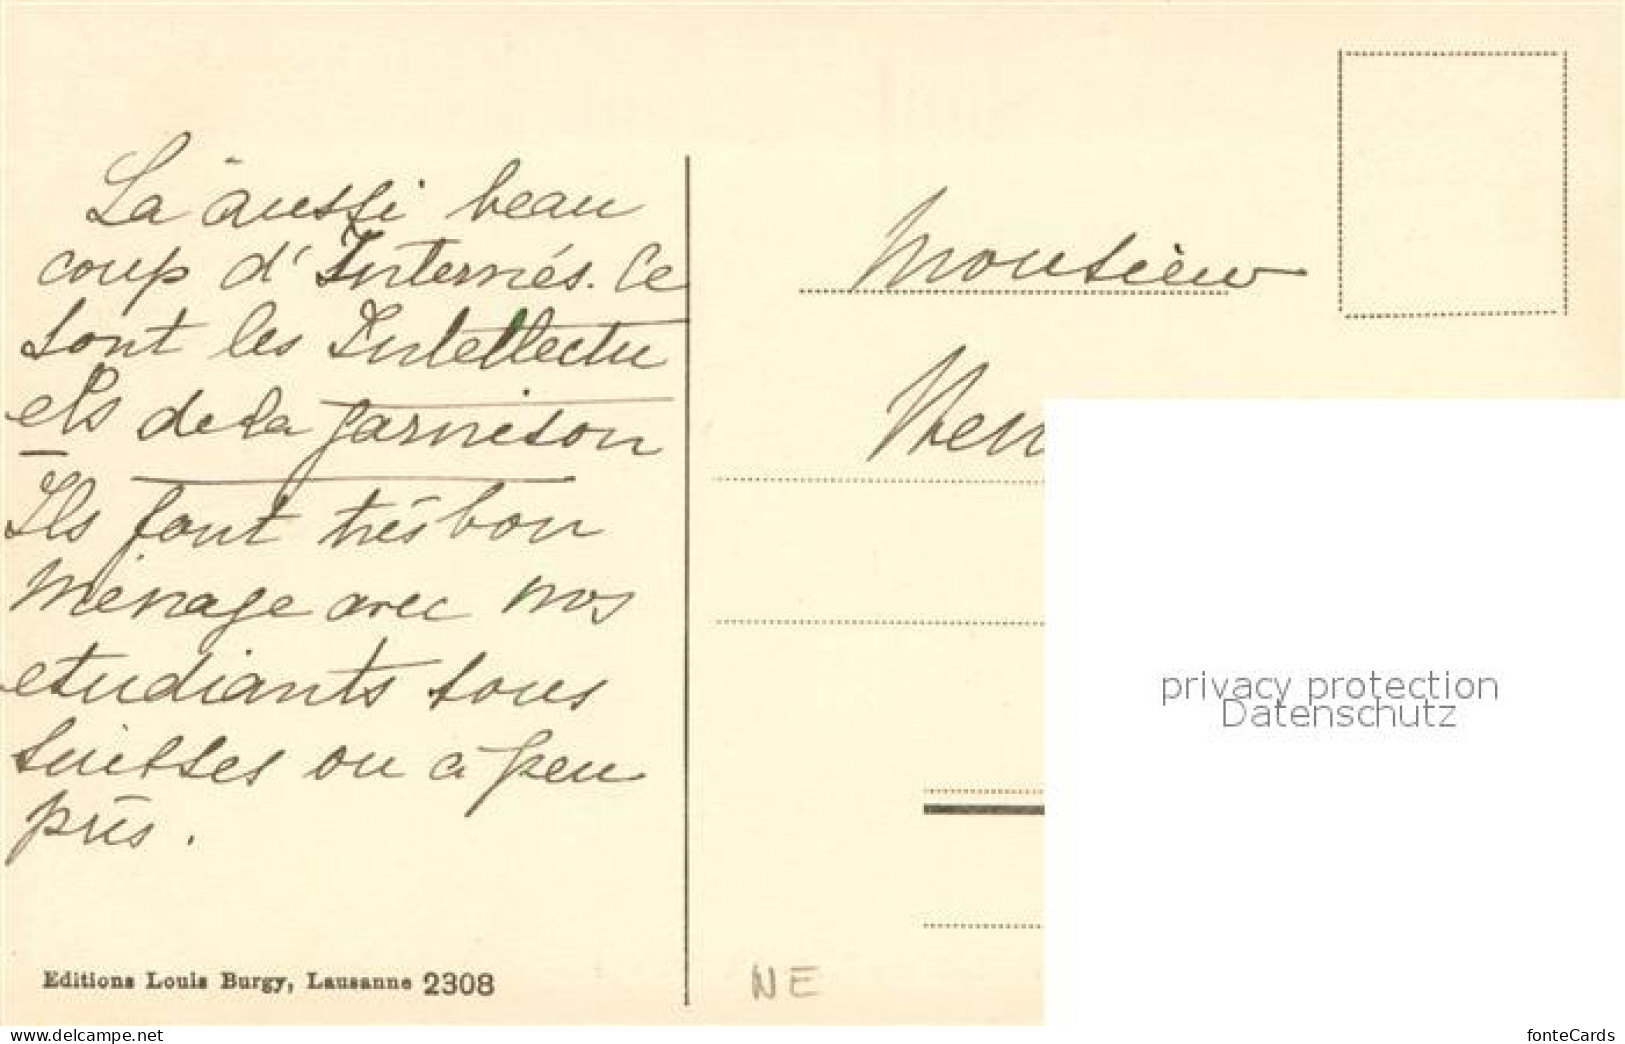 La aussi beau
coup d'Internés. Ce
sont les Intellectu
els de la garnison
Ils font très bon
ménage avec nos
etudiants tous
suisses ou à peu
près.
Editions Louis Burgy, Lausanne 2308
Monsieur
NE
privacy protection
Datenschutz
www.delcampe.net
fonteCards